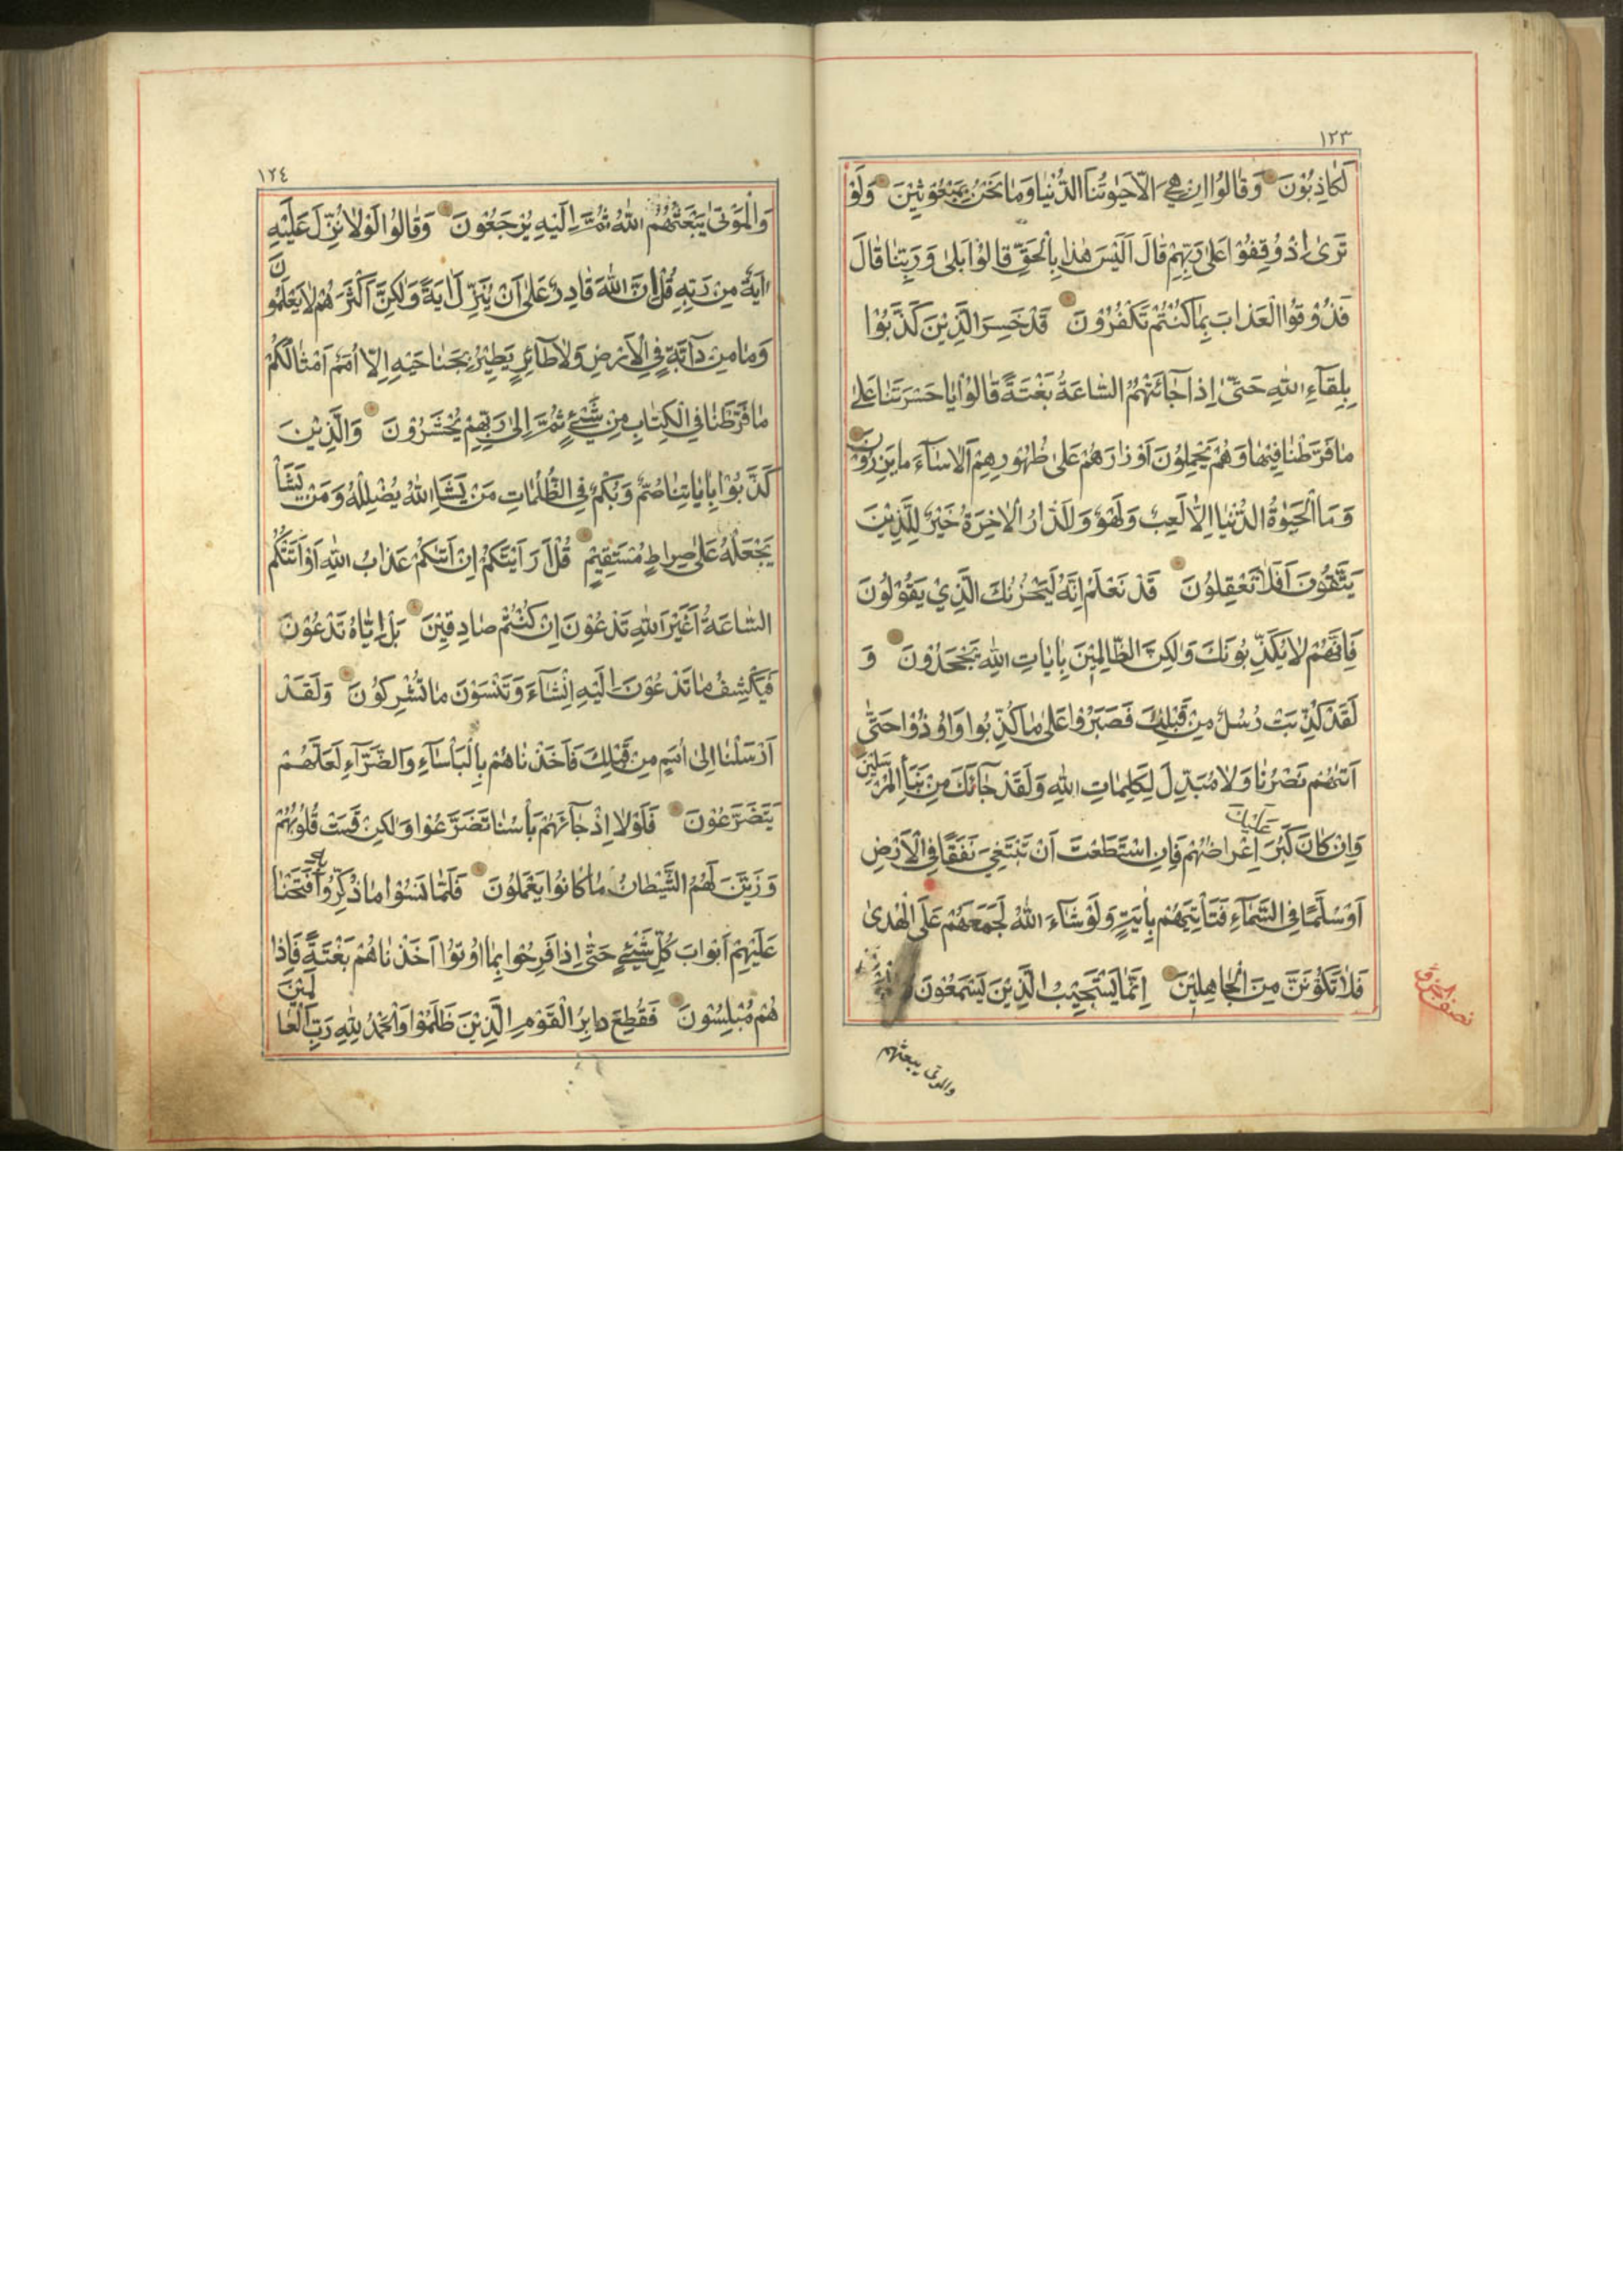 ١٢٣
لَكَاذِبُوْنَ وَقَالُوْا اِنْ هِيَ اِلَّا حَيٰوتُنَا الدُّنْيَا وَمَا نَحْنُ بِمَبْعُوثِيْنَ وَلَوْ
تَرٰى اِذْ وُقِفُوْا عَلٰى رَبِّهِمْ قَالَ اَلَيْسَ هٰذَا بِالْحَقِّ قَالُوْا بَلٰى وَرَبِّنَا قَالَ
فَذُوْقُوا الْعَذَابَ بِمَا كُنْتُمْ تَكْفُرُوْنَ قَدْ خَسِرَ الَّذِيْنَ كَذَّبُوْا
بِلِقَآءِ اللّٰهِ حَتّٰى اِذَا جَائَتْهُمُ السَّاعَةُ بَغْتَةً قَالُوْا يَا حَسْرَتَنَا عَلٰى
مَا فَرَّطْنَا فِيْهَا وَهُمْ يَحْمِلُوْنَ اَوْزَارَهُمْ عَلٰى ظُهُورِهِمْ اَلَا سَآءَ مَا يَزِرُوْنَ
وَمَا الْحَيٰوةُ الدُّنْيَا اِلَّا لَعِبٌ وَلَهْوٌ وَلَلدَّارُ الْاٰخِرَةُ خَيْرٌ لِلَّذِيْنَ
يَتَّقُوْنَ اَفَلَا تَعْقِلُوْنَ قَدْ نَعْلَمُ اِنَّهُ لَيَحْزُنُكَ الَّذِيْ يَقُوْلُوْنَ
فَاِنَّهُمْ لَا يُكَذِّبُوْنَكَ وَلٰكِنَّ الظَّالِمِيْنَ بِاٰيَاتِ اللّٰهِ يَجْحَدُوْنَ وَ
لَقَدْ كُذِّبَتْ رُسُلٌ مِنْ قَبْلِكَ فَصَبَرُوْا عَلٰى مَا كُذِّبُوا وَاُوْذُوْا حَتّٰى
اَتٰيهُمْ نَصْرُنَا وَلَا مُبَدِّلَ لِكَلِمَاتِ اللّٰهِ وَلَقَدْ جَآئَكَ مِنْ نَبَأِ الْمُرْسَلِيْنَ
وَاِنْ كَانَ كَبُرَ عَلَيْكَ اِعْرَاضُهُمْ فَاِنِ اسْتَطَعْتَ اَنْ تَبْتَغِيَ نَفَقًا فِي الْاَرْضِ
اَوْ سُلَّمًا فِي السَّمَآءِ فَتَأْتِيَهُمْ بِاٰيَةٍ وَلَوْ شَآءَ اللّٰهُ لَجَمَعَهُمْ عَلَى الْهُدٰى
فَلَا تَكُوْنَنَّ مِنَ الْجَاهِلِيْنَ اِنَّمَا يَسْتَجِيْبُ الَّذِيْنَ يَسْمَعُوْنَ
والموتى يبعثهم
١٢٤
وَالْمَوْتٰى يَبْعَثُهُمُ اللّٰهُ ثُمَّ اِلَيْهِ يُرْجَعُوْنَ وَقَالُوْا لَوْلَا نُزِّلَ عَلَيْهِ
اٰيَةٌ مِنْ رَبِّهِ قُلْ اِنَّ اللّٰهَ قَادِرٌ عَلٰى اَنْ يُنَزِّلَ اٰيَةً وَلٰكِنَّ اَكْثَرَهُمْ لَا يَعْلَمُوْنَ
وَمَا مِنْ دَآبَّةٍ فِي الْاَرْضِ وَلَا طَآئِرٍ يَطِيْرُ بِجَنَاحَيْهِ اِلَّا اُمَمٌ اَمْثَالُكُمْ
مَا فَرَّطْنَا فِي الْكِتَابِ مِنْ شَيْءٍ ثُمَّ اِلٰى رَبِّهِمْ يُحْشَرُوْنَ وَالَّذِيْنَ
كَذَّبُوْا بِاٰيَاتِنَا صُمٌّ وَبُكْمٌ فِي الظُّلُمَاتِ مَنْ يَشَاِ اللّٰهُ يُضْلِلْهُ وَمَنْ يَشَأْ
يَجْعَلْهُ عَلٰى صِرَاطٍ مُسْتَقِيْمٍ قُلْ اَرَاَيْتَكُمْ اِنْ اَتٰيكُمْ عَذَابُ اللّٰهِ اَوْ اَتَتْكُمُ
السَّاعَةُ اَغَيْرَ اللّٰهِ تَدْعُوْنَ اِنْ كُنْتُمْ صَادِقِيْنَ بَلْ اِيَّاهُ تَدْعُوْنَ
فَيَكْشِفُ مَا تَدْعُوْنَ اِلَيْهِ اِنْ شَآءَ وَتَنْسَوْنَ مَا تُشْرِكُوْنَ وَلَقَدْ
اَرْسَلْنَا اِلٰى اُمَمٍ مِنْ قَبْلِكَ فَاَخَذْنَاهُمْ بِالْبَأْسَآءِ وَالضَّرَّآءِ لَعَلَّهُمْ
يَتَضَرَّعُوْنَ فَلَوْلَا اِذْ جَآئَهُمْ بَأْسُنَا تَضَرَّعُوْا وَلٰكِنْ قَسَتْ قُلُوْبُهُمْ
وَزَيَّنَ لَهُمُ الشَّيْطَانُ مَا كَانُوا يَعْمَلُوْنَ فَلَمَّا نَسُوْا مَا ذُكِّرُوْا بِهِ فَتَحْنَا
عَلَيْهِمْ اَبْوَابَ كُلِّ شَيْءٍ حَتّٰى اِذَا فَرِحُوْا بِمَا اُوْتُوْا اَخَذْنَاهُمْ بَغْتَةً فَاِذَا
هُمْ مُبْلِسُوْنَ فَقُطِعَ دَابِرُ الْقَوْمِ الَّذِيْنَ ظَلَمُوْا وَالْحَمْدُ لِلّٰهِ رَبِّ الْعَالَمِيْنَ